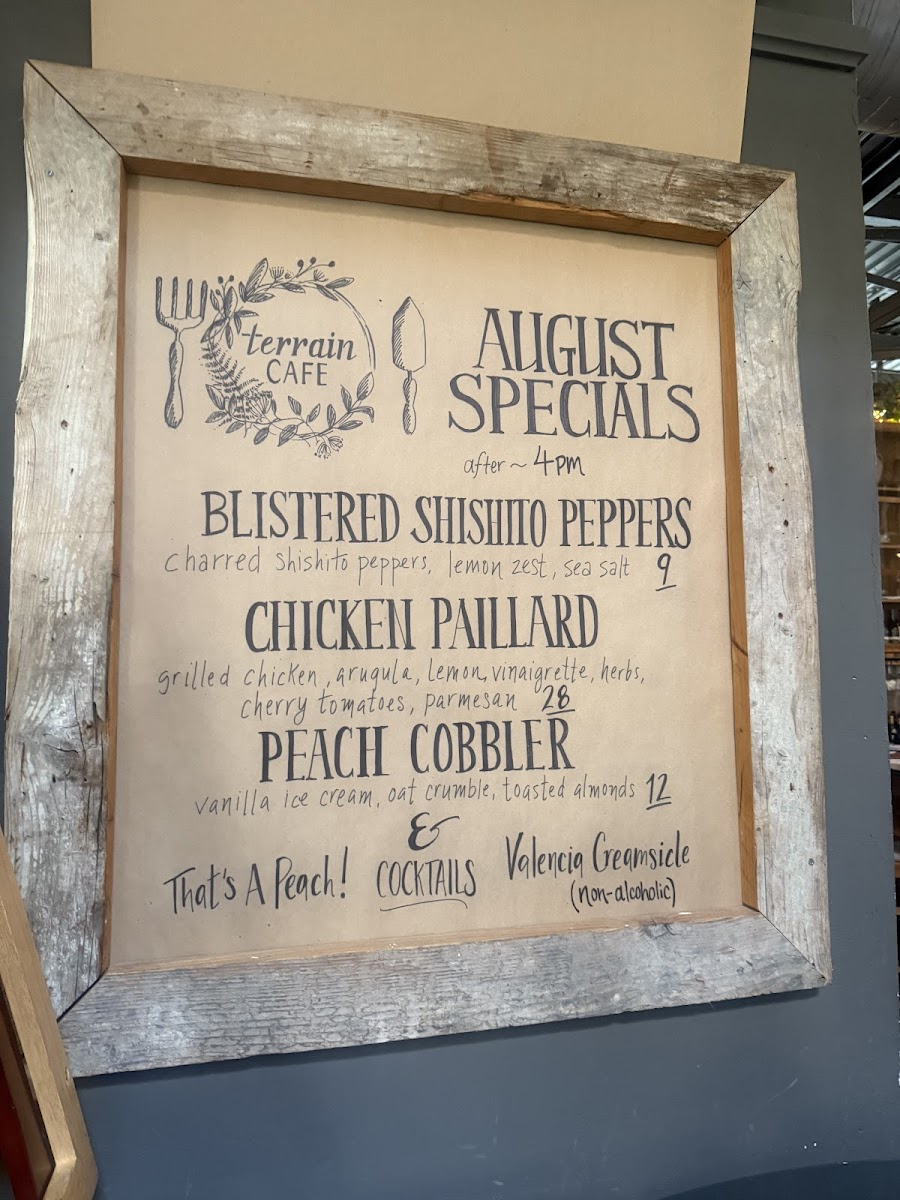 terrain
CAFE
AUGUST
SPECIALS
after ~ 4pm
BLISTERED SHISHITO PEPPERS
charred shishito peppers, lemon zest, sea salt 9
CHICKEN PAILLARD
grilled chicken, arugula, lemon, vinaigrette, herbs,
cherry tomatoes, parmesan 28
PEACH COBBLER
vanilla ice cream, oat crumble, toasted almonds 12
&
That's A Peach! COCKTAILS Valencia Creamsicle
(non-alcoholic)